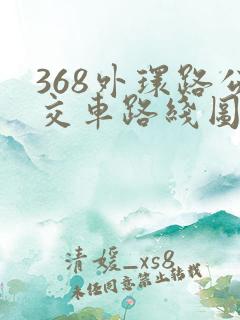 368外环路公
交车路线图
清媛_xs8
未经同意禁止转载